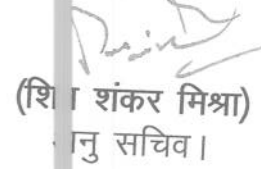 (शि शंकर मिश्रा)
नु सचिव।